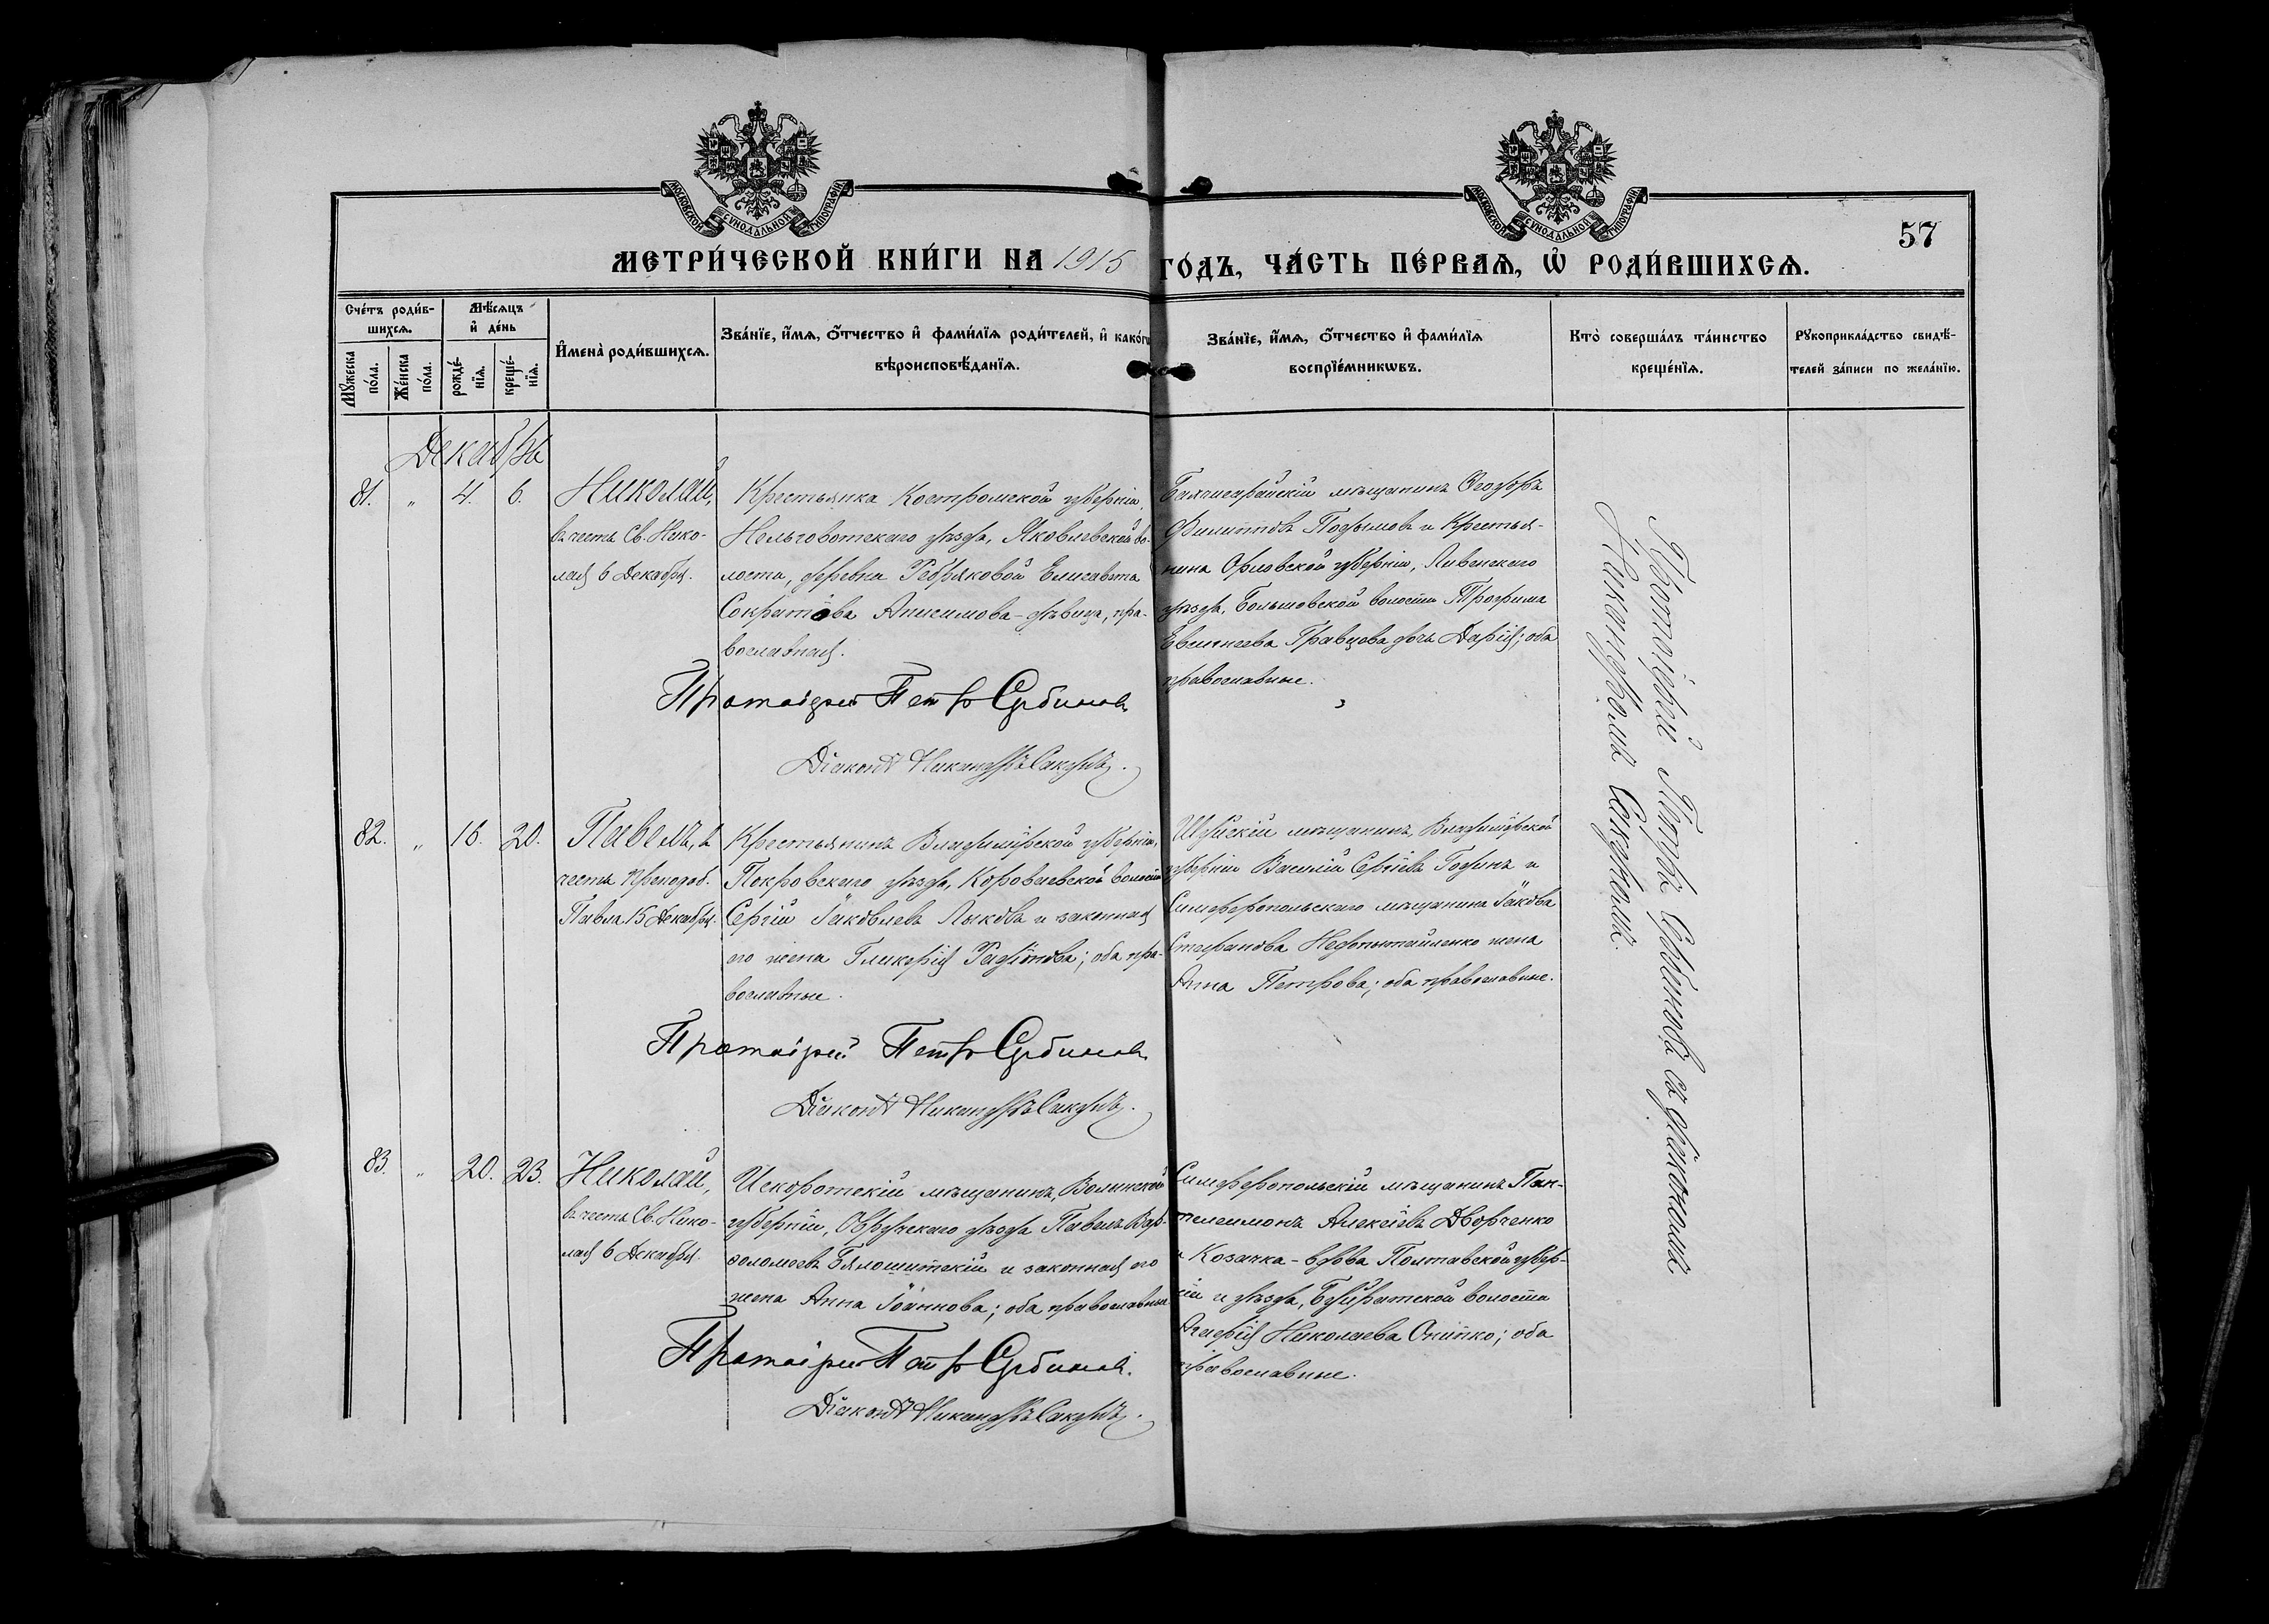 МОСКОВСКОЙ СѴНОДАЛЬНОЙ ТИПОГРАФІИ
МОСКОВСКОЙ СѴНОДАЛЬНОЙ ТИПОГРАФІИ
57
МЕТРИ́ЧЕСКОЙ КНИ́ГИ НА 1915 ГО́ДЪ, ЧА́СТЬ ПЕ́РВАѦ, Ѡ҆ РОДИ́ВШИХСѦ.
Сче́тъ роди́в-
шихсѧ.
Мꙋ́жеска по́ла.
Же́нска по́ла.
Мѣ́сѧцъ
и҆ де́нь
рожде́-
нїѧ.
креще́-
нїѧ.
И҆мена̀ роди́вшихсѧ.
Зва́нїе, и҆́мѧ, ѻ҆́тчество и҆ фами́лїѧ роди́телей, и҆ како́гѡ
вѣроисповѣ́данїѧ.
Зва́нїе, и҆́мѧ, ѻ҆́тчество и҆ фами́лїѧ
воспрїе́мникѡвъ.
Кто̀ соверша́лъ та́инство
креще́нїѧ.
Рꙋкоприкла́дство свидѣ́-
телей за́писи по жела́нїю.
Декабрь
81. " 4. 6.
Николай,
въ честь Св. Нико-
лая 6 Декабря.
Крестьянка Костромской губерніи,
уѣзда, Яковлевской во-
лости, деревни Ребряковой Елисавета
Сократова Анисимова - дѣвица, пра-
вославная.
Протоіерей Петръ Сербиновъ
Діаконъ Никандръ Сакунъ.
Бахчисарайскій мѣщанинъ Ѳеодоръ
Филипповъ и Крестья-
нина Орловской губерніи, Ливенскаго
уѣзда, волости Трофима
Евсикеева дочь Дарія; оба
православные.
82. " 16. 20.
Павелъ, въ
честь преподоб.
Павла 15 Декабря.
Крестьянинъ Владимірской губерніи,
Покровскаго уѣзда, Короваевской волости
Сергій Іаковлевъ Лыковъ и законная
его жена Гликерія Родіонова; оба пра-
вославные.
Протоіерей Петръ Сербиновъ
Діаконъ Никандръ Сакунъ.
Шуйскій мѣщанинъ, Владимірской
губерніи Василій Сергіевъ Годинъ и
Симферопольскаго мѣщанина Іакова
Стефанова жена
Анна Петрова; оба православные.
83. " 20. 23.
Николай,
въ честь Св. Нико-
лая 6 Декабря.
Искоростскій мѣщанинъ, Волынской
губерніи, Овручскаго уѣзда Павелъ Вар-
ѳоломеевъ Бялошитскій и законная его
жена Анна Іоаннова; оба православные
Протоіерей Петръ Сербиновъ.
Діаконъ Никандръ Сакунъ.
Симферопольскій мѣщанинъ Пан-
телеимонъ Алексіевъ Дворченко
и Козачка - вдова Полтавской губер-
ніи и уѣзда, волости
Николаева; оба
православные.
Протоіерей Петръ Сербиновъ съ діакономъ
Никандромъ Сакунъ.